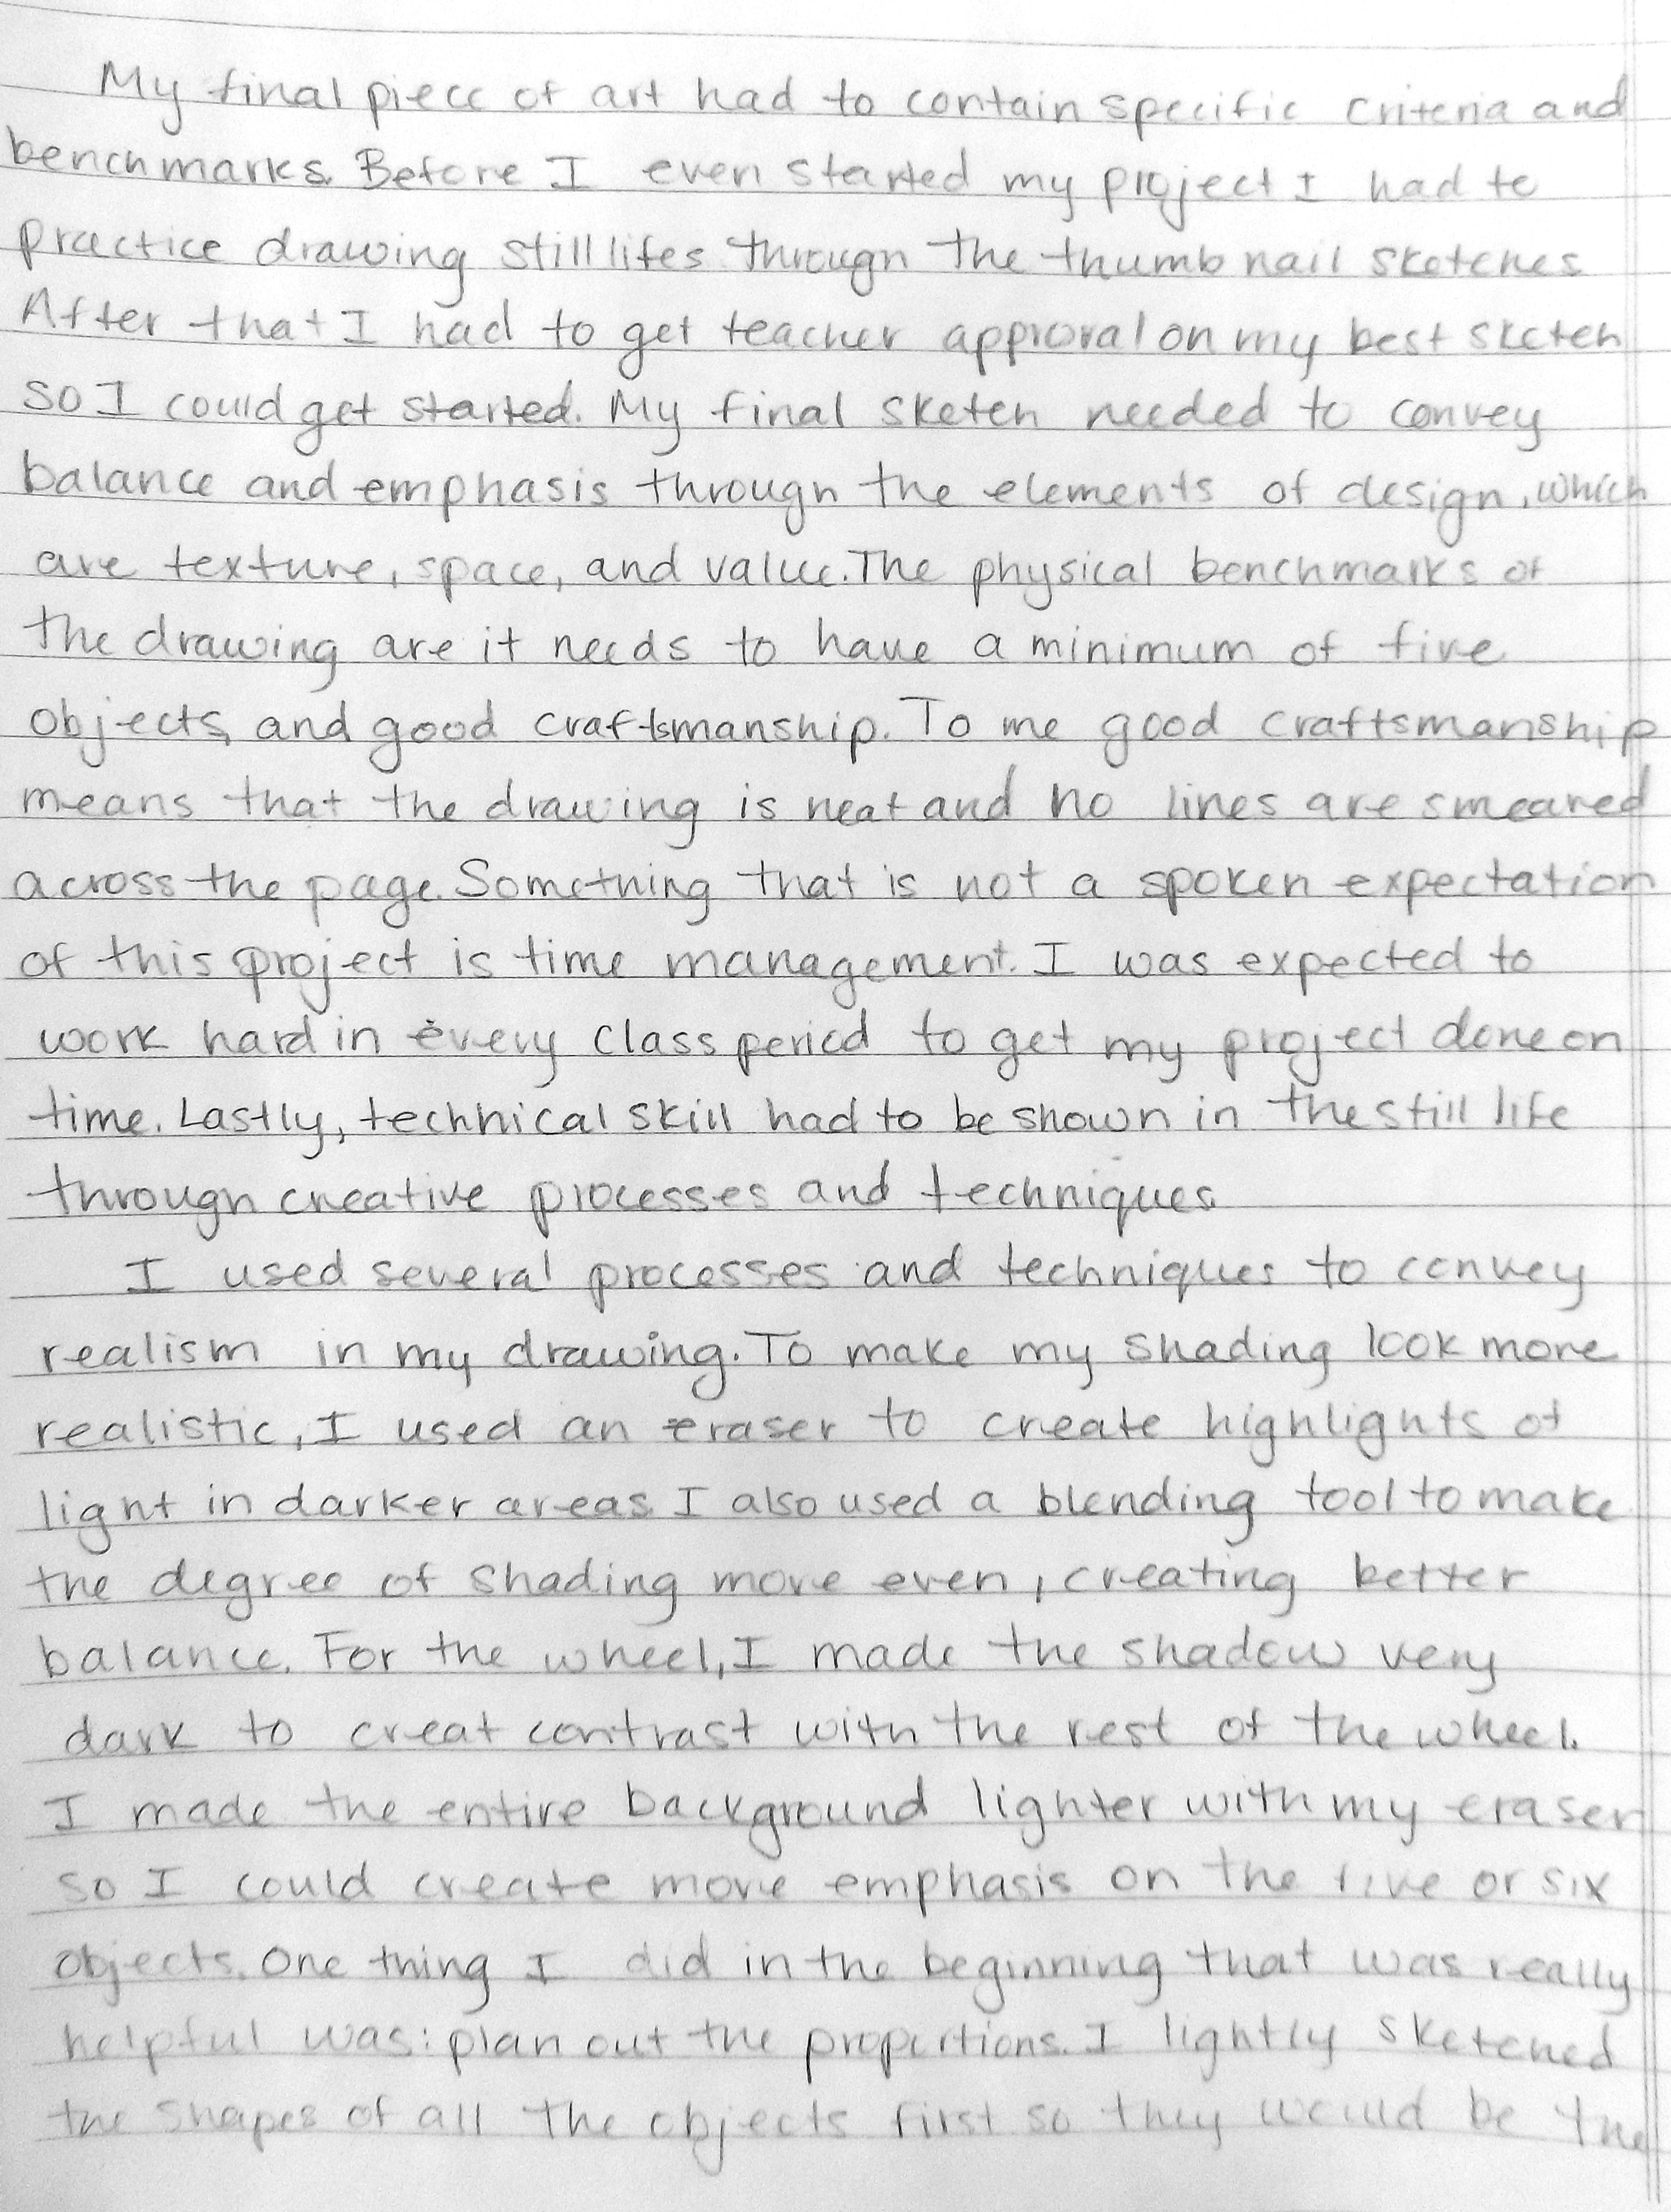 My final piece of art had to contain specific criteria and
benchmarks. Before I even started my project I had to
practice drawing still lifes through the thumb nail sketches
After that I had to get teacher approval on my best sketch
so I could get started. My final sketch needed to convey
balance and emphasis through the elements of design, which
are texture, space, and value. The physical benchmarks of
the drawing are it needs to have a minimum of five
objects, and good craftsmanship. To me good craftsmanship
means that the drawing is neat and no lines are smeared
across the page. Something that is not a spoken expectation
of this project is time management. I was expected to
work hard in every class period to get my project done on
time. Lastly, technical skill had to be shown in the still life
through creative processes and techniques.
I used several processes and techniques to convey
realism in my drawing. To make my shading look more
realistic, I used an eraser to create highlights of
light in darker areas. I also used a blending tool to make
the degree of shading more even, creating better
balance. For the wheel, I made the shadow very
dark to creat contrast with the rest of the wheel.
I made the entire background lighter with my eraser
so I could create more emphasis on the five or six
objects. One thing I did in the beginning that was really
helpful was: plan out the proportions. I lightly sketched
the shapes of all the objects first so they would be the